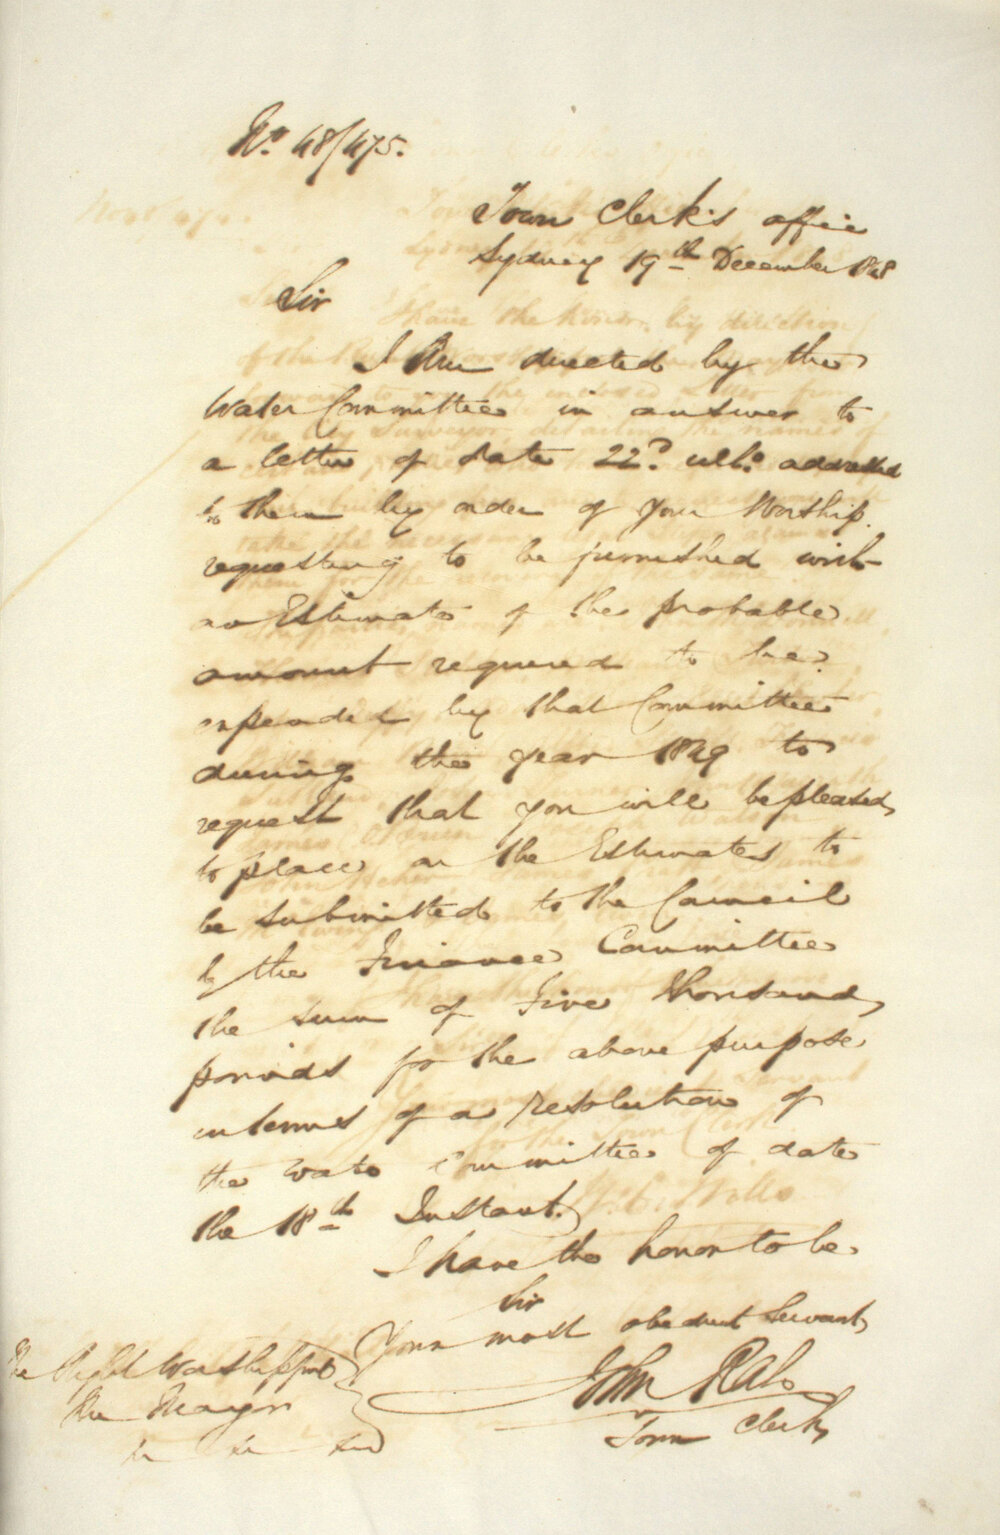 No. 48/475.
Town Clerk's office
Sydney 19th December 1848
Sir
I Am directed by the
Water Committee in answer to
a letter of date 22d. ulto. addressed
to them by order of Your Worship
requesting to be furnished with
an Estimate of the probable
amount required to be
expended by that Committee
during the year 1849 to
request that you will be pleased
to place on the Estimates to
be submitted to the Council
by the Finance Committee
the sum of Five thousand
pounds for the above purpose
in terms of a resolution of
the Water Committee of date
the 18th Instant.
I have the honor to be
Sir
Your most obedient Servant
John Rae
Town Clerk
The Right Worshipful
The Mayor